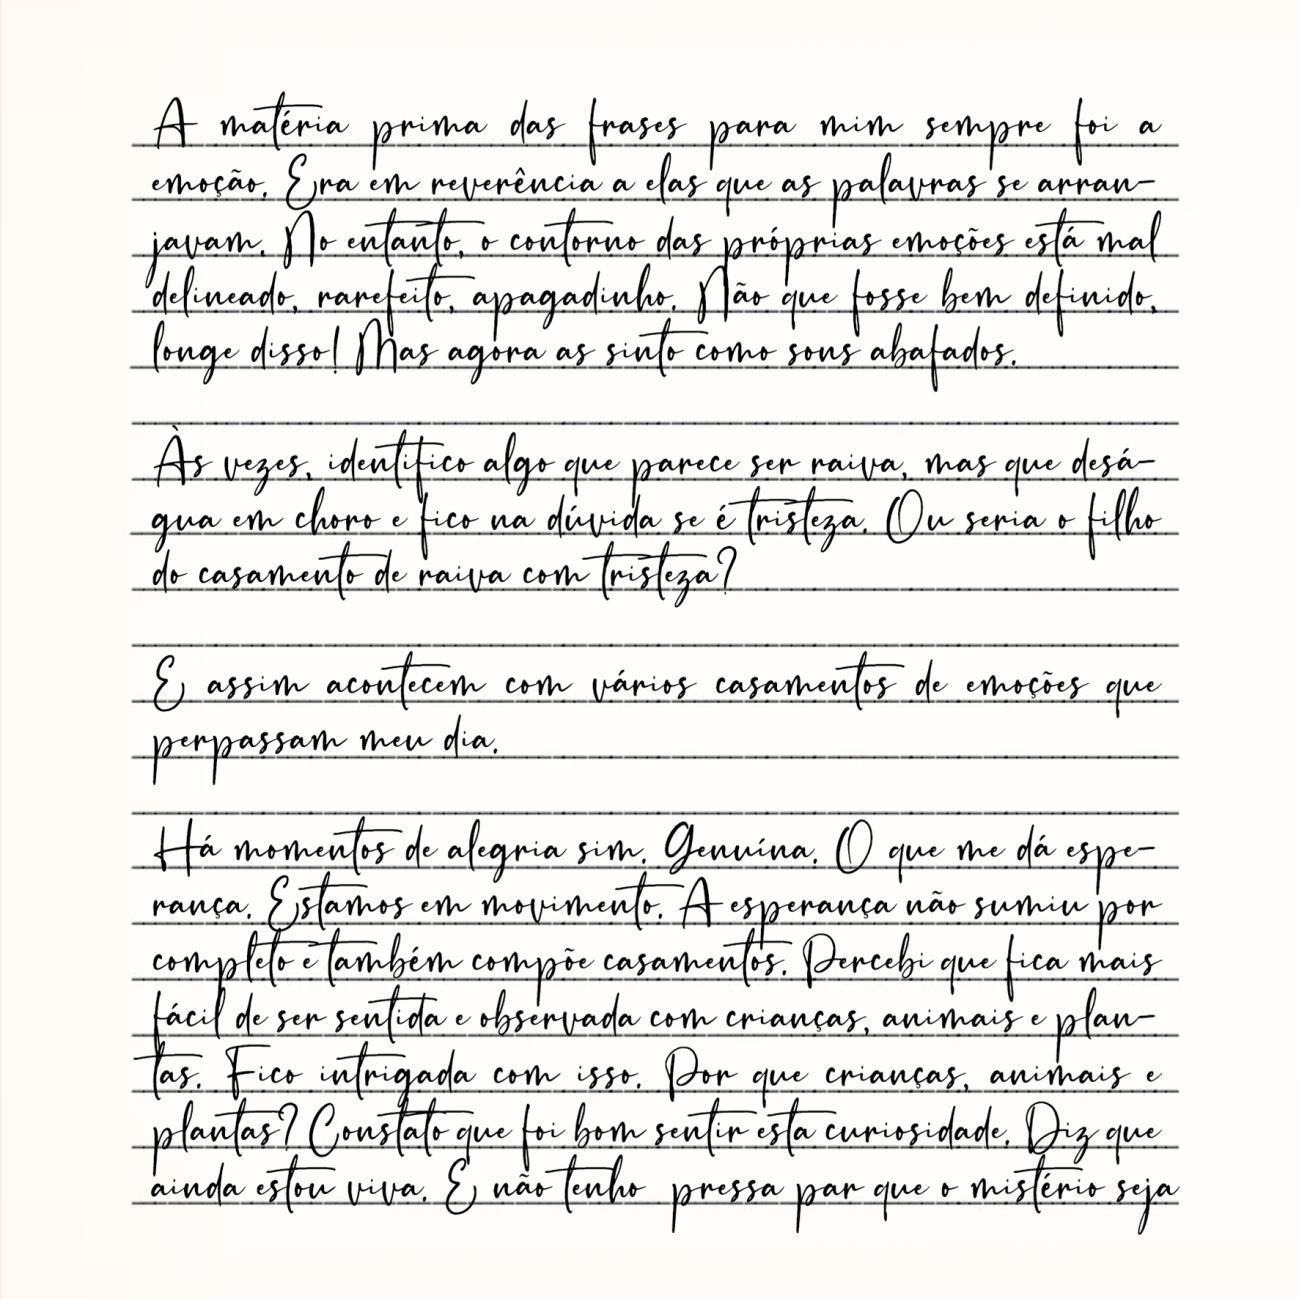 A matéria prima das frases para mim sempre foi a
emoção. Era em reverência a elas que as palavras se arran-
javam. No entanto, o contorno das próprias emoções está mal
delineado, rarefeito, apagadinho. Não que fosse bem definido,
longe disso! Mas agora as sinto como sons abafados.

Às vezes, identifico algo que parece ser raiva, mas que desá-
gua em choro e fico na dúvida se é tristeza. Ou seria o filho
do casamento de raiva com tristeza?

E assim acontecem com vários casamentos de emoções que
perpassam meu dia.

Há momentos de alegria sim. Genuína. O que me dá espe-
rança. Estamos em movimento. A esperança não sumiu por
completo e também compõe casamentos. Percebi que fica mais
fácil de ser sentida e observada com crianças, animais e plan-
tas. Fico intrigada com isso. Por que crianças, animais e
plantas? Constato que foi bom sentir esta curiosidade. Diz que
ainda estou viva. E não tenho pressa par que o mistério seja